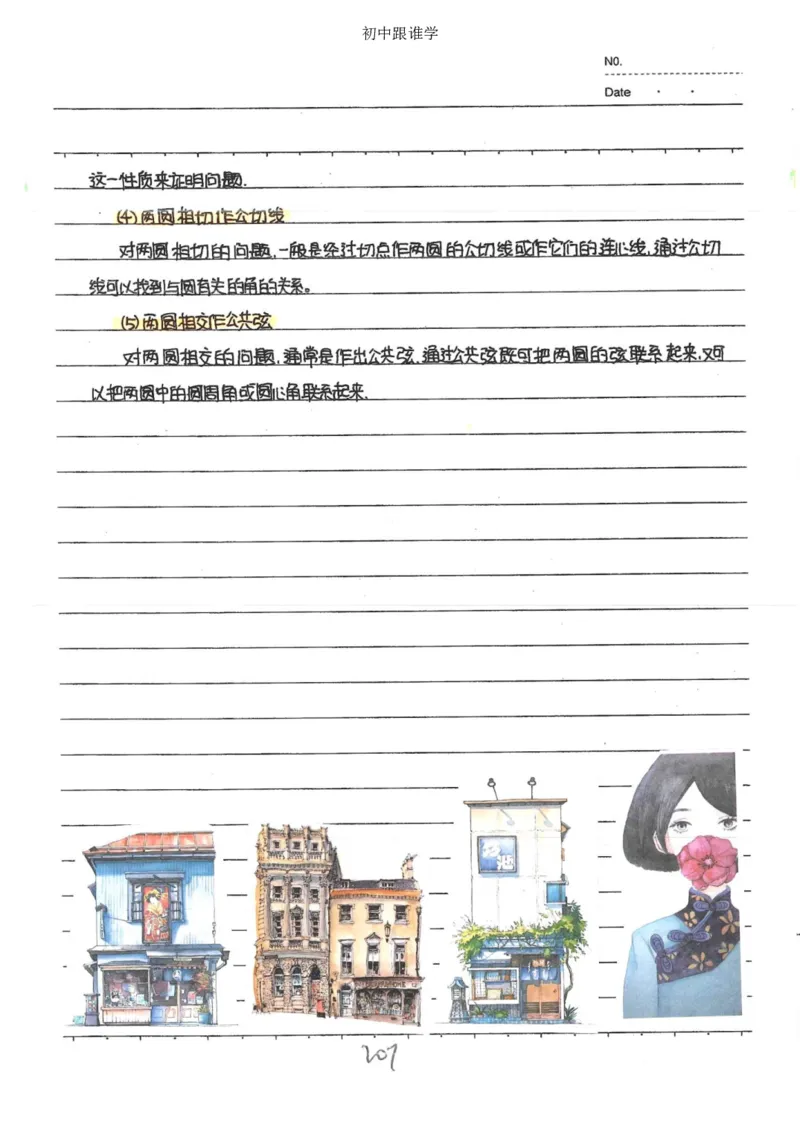 初中跟谁学
NO.
Date
这一性质来证明问题.
(4)两圆相切作公切线
对两圆相切的问题,一般是经过切点作两圆的公切线或作它们的连心线,通过公切
线可以找到与圆有关的角的关系。
(5)两圆相交作公共弦
对两圆相交的问题,通常是作出公共弦.通过公共弦既可把两圆的弦联系起来,又可
以把两圆中的圆周角或圆心角联系起来.
207